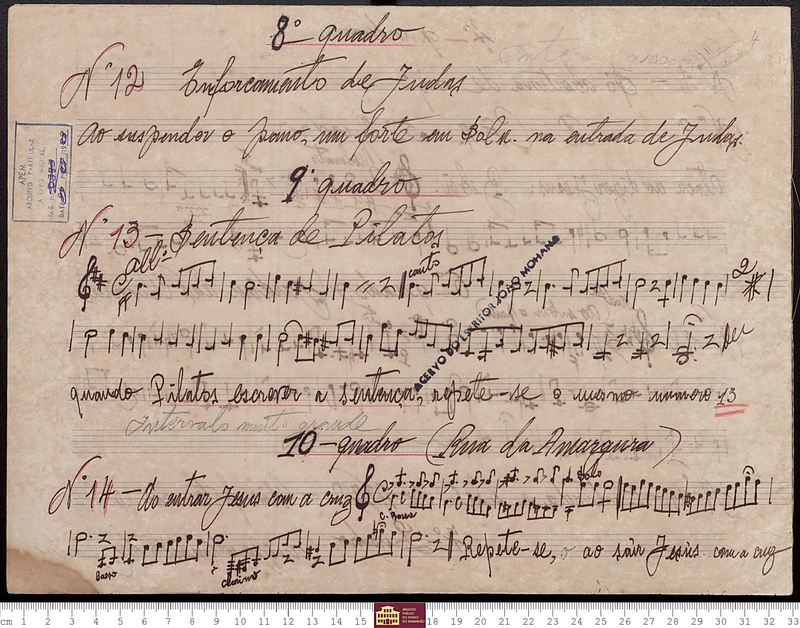 8º quadro
Nº 12 Enforcamento de Judas
Ao suspender o pano, um forte em Sol M. na entrada de Judas.
9º quadro
Nº 13 - Sentença de Pilatos
All.º
ff
canto
2
quando Pilatos escrever a sentença, repete-se o mesmo numero 13
Intervalo muito grande
10 - quadro (Rua da Amargura)
Nº 14 - Ao entrar Jesus com a cruz
Solo
C. Baixo
Baixo
Repete-se, o ao sair Jesus com a cruz
APEM
ARQUIVO PARTICULAR
ACERVO DO ESCRITOR JOÃO MOHANA
ARQUIVO PÚBLICO DO ESTADO DO MARANHÃO
cm 1 2 3 4 5 6 7 8 9 10 11 12 13 14 15 18 19 20 21 22 23 24 25 26 27 28 29 30 31 32 33